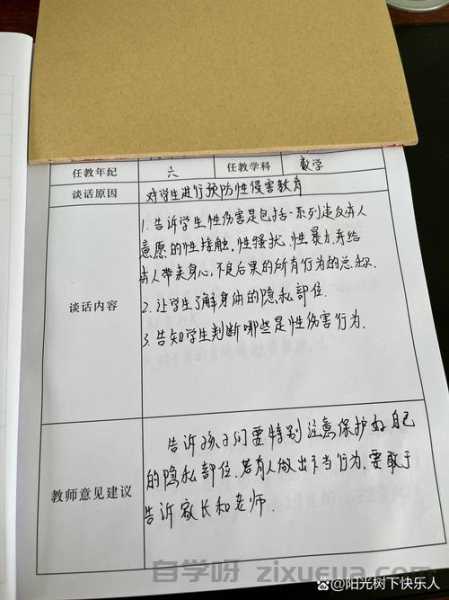 任教年纪 六 任教学科 数学
谈话原因 对学生进行预防性侵害教育
1.告诉学生性伤害是包括一系列违反他人
意愿的性接触,性骚扰,性暴力,并给
他人带来身心,不良后果的所有行为的总称.
谈话内容
2.让学生了解身体的隐私部位.
3.告知学生判断哪些是性伤害行为.
告诉孩子们要特别注意保护好自己
的隐私部位.若有人做出不当行为,要敢于
教师意见建议
告诉家长和老师.
自学呀 zixueya.com
@阳光树下快乐人